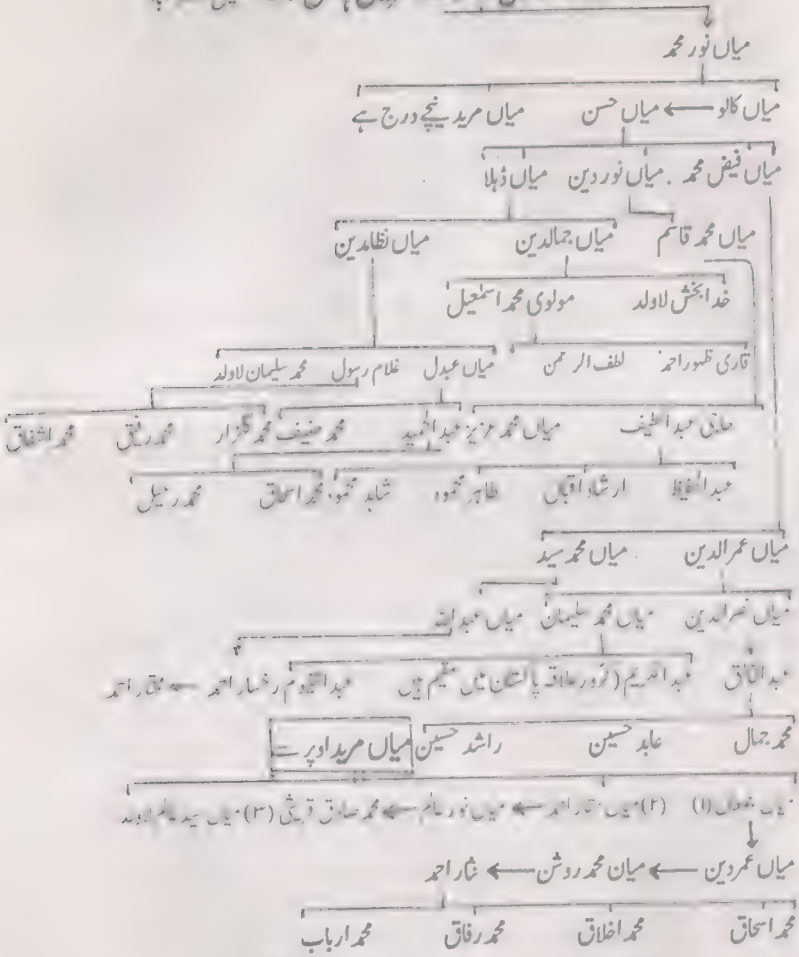 میاں نور محمد
میاں کالو ← میاں حسن میاں مرید نیچے درج ہے
میاں فیض محمد میاں نور دین میاں ڈہلا
میاں محمد قاسم میاں جمالدین میاں نظامدین
خدا بخش لاولد مولوی محمد اسمٰعیل
قاری ظہور احمد لطف الرحمن میاں عبدل غلام رسول محمد سلیمان لاولد
حاجی عبد الطیف میاں محمد عزیز عبد الحمید محمد حنیف محمد گلزار محمد رفیق محمد اشفاق
عبد الحفیظ ارشاد اقبال طاہر محمود شاہد محمود محمد اسحاق محمد رحیل
میاں عمر الدین میاں محمد سید
میاں نصر الدین میاں محمد سلیمان میاں عبد اللہ
عبد الخالق عبد الکریم ( علاقہ پاکستان میں مقیم ہیں عبد القیوم رخسار احمد ← مختار احمد
محمد جمال عابد حسین راشد حسین میاں مرید اوپر سے
میاں (۱) (۲) میاں ← میاں نور عالم ← محمد صادق قریشی (۳) میاں سید عالم لاولد
میاں عمر دین ← میاں محمد روشن ← نثار احمد
محمد اسحاق محمد اخلاق محمد رفاق محمد ارباب